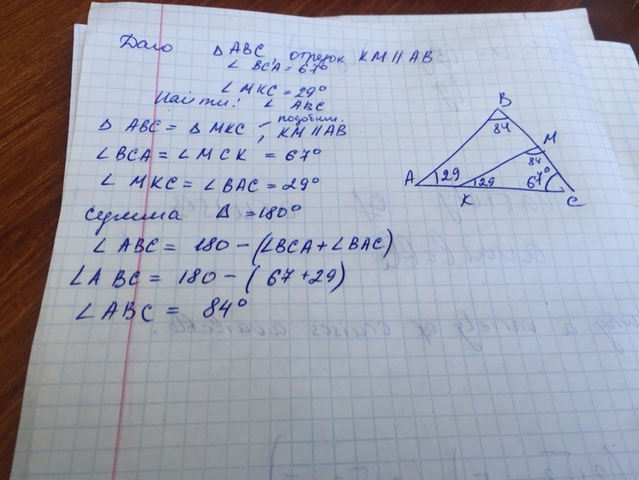 Дано Δ ABC, отрезок KM || AB
∠ BCA = 67°
∠ MKC = 29°
Найти: ∠ ABC
Δ ABC = Δ MKC – подобны, KM || AB
∠ BCA = ∠ MCK = 67°
∠ MKC = ∠ BAC = 29°
Сумма Δ = 180°
∠ ABC = 180 – (∠BCA + ∠BAC)
∠ABC = 180 – ( 67 + 29)
∠ABC = 84°
B
84
M
84
A 29 K 29 67° C